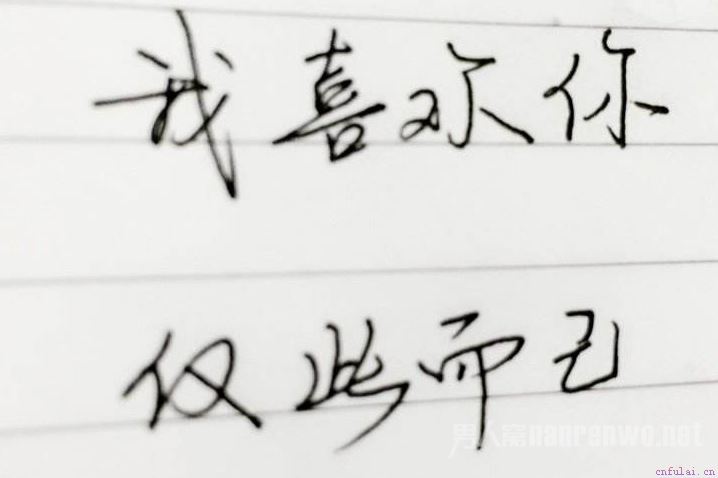 我喜欢你
仅此而已
男人窝nanranwo.net
cnfulai.cn